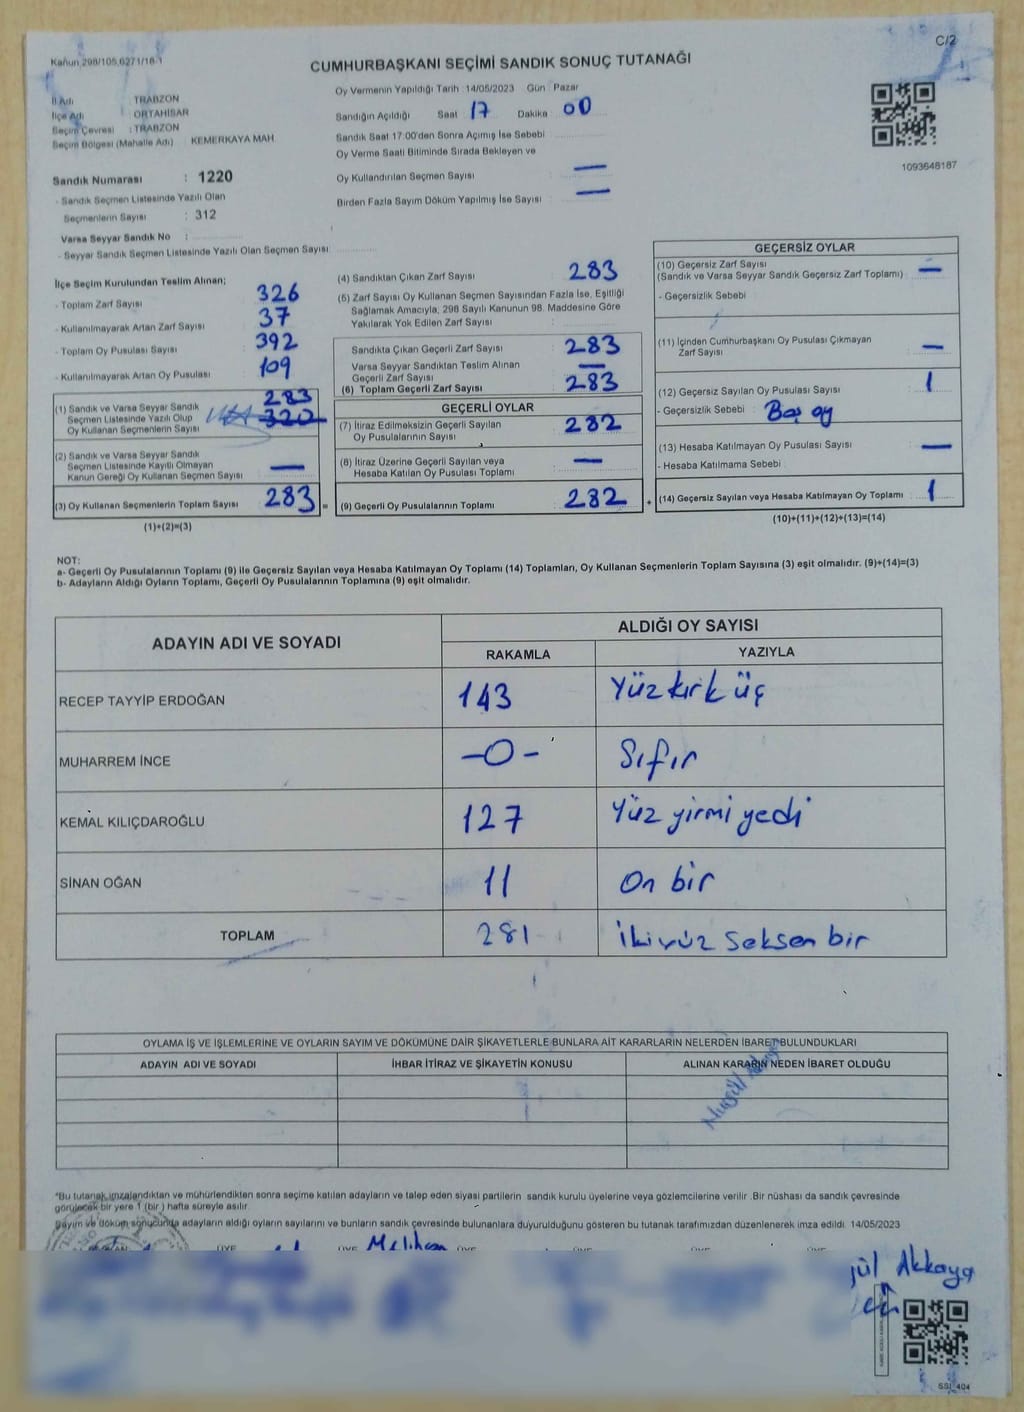 C/2
Kanun 298/105,6271/18-1
CUMHURBAŞKANI SEÇİMİ SANDIK SONUÇ TUTANAĞI
İl Adı : TRABZON
İlçe Adı : ORTAHİSAR
Seçim Çevresi : TRABZON
Seçim Bölgesi (Mahalle Adı) KEMERKAYA MAH
Sandık Numarası : 1220
- Sandık Seçmen Listesinde Yazılı Olan
Seçmenlerin Sayısı : 312
Varsa Seyyar Sandık No :
- Seyyar Sandık Seçmen Listesinde Yazılı Olan Seçmen Sayısı
Oy Vermenin Yapıldığı Tarih 14/05/2023 Gün Pazar
Sandığın Açıldığı Saat 17 Dakika 00
Sandık Saat 17:00'den Sonra Açımış İse Sebebi
Oy Verme Saati Bitiminde Sırada Bekleyen ve
Oy Kullandırılan Seçmen Sayısı —
Birden Fazla Sayım Döküm Yapılmış İse Sayısı —
1093648187
İlçe Seçim Kurulundan Teslim Alınan;
- Toplam Zarf Sayısı 326
- Kullanılmayarak Artan Zarf Sayısı 37
- Toplam Oy Pusulası Sayısı 392
- Kullanılmayarak Artan Oy Pusulası 109
(1) Sandık ve Varsa Seyyar Sandık 283
Seçmen Listesinde Yazılı Olup 320
Oy Kullanan Seçmenlerin Sayısı
(2) Sandık ve Varsa Seyyar Sandık
Seçmen Listesinde Kayıtlı Olmayan —
Kanun Gereği Oy Kullanan Seçmen Sayısı
(3) Oy Kullanan Seçmenlerin Toplam Sayısı 283 =
(1)+(2)=(3)
(4) Sandıktan Çıkan Zarf Sayısı 283
(5) Zarf Sayısı Oy Kullanan Seçmen Sayısından Fazla İse, Eşitliği
Sağlamak Amacıyla, 298 Sayılı Kanunun 98. Maddesine Göre
Yakılarak Yok Edilen Zarf Sayısı
Sandıkta Çıkan Geçerli Zarf Sayısı 283
Varsa Seyyar Sandıktan Teslim Alınan
Geçerli Zarf Sayısı —
(6) Toplam Geçerli Zarf Sayısı 283
GEÇERLİ OYLAR
(7) İtiraz Edilmeksizin Geçerli Sayılan
Oy Pusulalarının Sayısı 282
(8) İtiraz Üzerine Geçerli Sayılan veya
Hesaba Katılan Oy Pusulası Toplamı —
(9) Geçerli Oy Pusulalarının Toplamı 282 +
GEÇERSİZ OYLAR
(10) Geçersiz Zarf Sayısı
(Sandık ve Varsa Seyyar Sandık Geçersiz Zarf Toplamı) —
- Geçersizlik Sebebi
(11) İçinden Cumhurbaşkanı Oy Pusulası Çıkmayan
Zarf Sayısı —
(12) Geçersiz Sayılan Oy Pusulası Sayısı 1
- Geçersizlik Sebebi : Boş oy
(13) Hesaba Katılmayan Oy Pusulası Sayısı —
- Hesaba Katılmama Sebebi
(14) Geçersiz Sayılan veya Hesaba Katılmayan Oy Toplamı 1
(10)+(11)+(12)+(13)=(14)
NOT:
a- Geçerli Oy Pusulalarının Toplamı (9) ile Geçersiz Sayılan veya Hesaba Katılmayan Oy Toplamı (14) Toplamları, Oy Kullanan Seçmenlerin Toplam Sayısına (3) eşit olmalıdır. (9)+(14)=(3)
b- Adayların Aldığı Oyların Toplamı, Geçerli Oy Pusulalarının Toplamına (9) eşit olmalıdır.
ADAYIN ADI VE SOYADI ALDIĞI OY SAYISI
RAKAMLA YAZIYLA
RECEP TAYYİP ERDOĞAN 143 Yüz kırk üç
MUHARREM İNCE -0- Sıfır
KEMAL KILIÇDAROĞLU 127 Yüz yirmi yedi
SİNAN OĞAN 11 On bir
TOPLAM 281 İkiyüz seksen bir
OYLAMA İŞ VE İŞLEMLERİNE VE OYLARIN SAYIM VE DÖKÜMÜNE DAİR ŞİKAYETLERLE BUNLARA AİT KARARLARIN NELERDEN İBARET BULUNDUKLARI
ADAYIN ADI VE SOYADI İHBAR İTİRAZ VE ŞİKAYETİN KONUSU ALINAN KARARIN NEDEN İBARET OLDUĞU
*Bu tutanak imzalandıktan ve mühürlendikten sonra seçime katılan adayların ve talep eden siyasi partilerin sandık kurulu üyelerine veya gözlemcilerine verilir .Bir nüshası da sandık çevresinde
görülecek bir yere 1 (bir ) hafta süreyle asılır.
Sayım ve döküm sonucunda adayların aldığı oyların sayılarını ve bunların sandık çevresinde bulunanlara duyurulduğunu gösteren bu tutanak tarafımızdan düzenlenerek imza edildi. 14/05/2023
ÜYE ÜYE Melihcan ÜYE ÜYE ÜYE
Akkaya
SSI_404